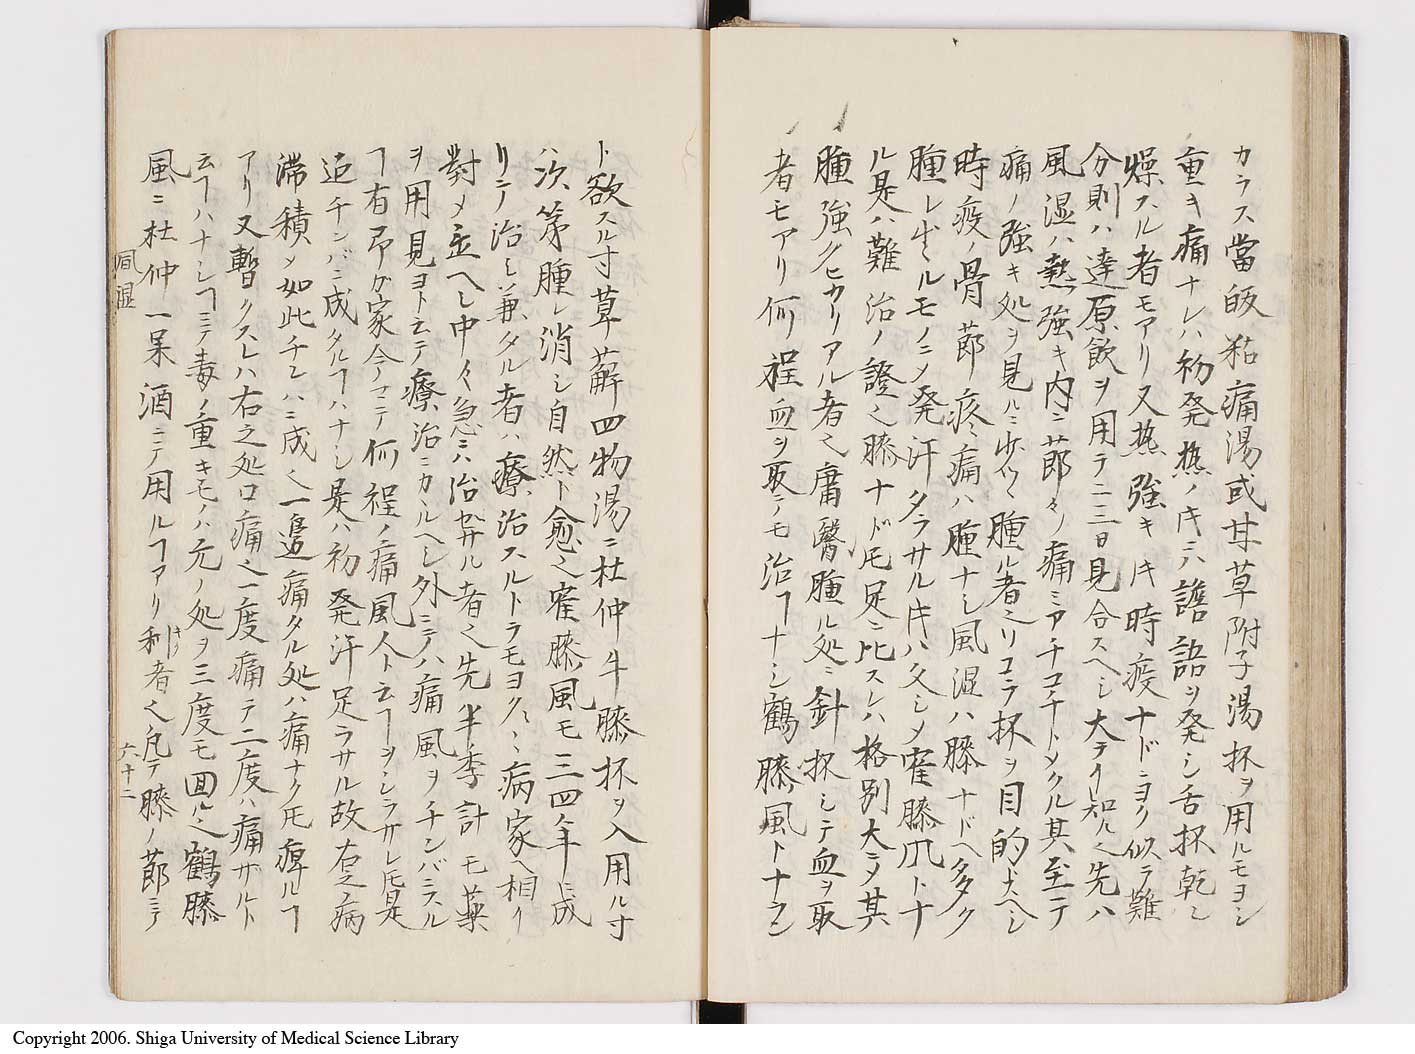 カラス當皈粘痛湯或甘草附子湯抔ヲ用ルモヨシ
重キ痛ナレハ初発熱ノ𪜈ニハ譫語ヲ発シ舌抔乾シ
燥スル者モアリ又熱強キ𪜈時疫ナドニヨク似テ難
分則ハ達原飲ヲ用テ二三日見合スヘシ大テイ知ル也先ハ
風湿ハ熱強キ内ニ莭々ノ痛ミアチコチトメクル其至テ
痛ノ強キ処ヲ見ルニ少ツヽ腫ル者也リコラ抔ヲ目的大ヘシ
時疫ノ骨莭疼痛ハ腫ナシ風湿ハ膝ナドヘ多ク
腫レ出ルモノニメ発汗タラサル𪜈ハ久シメ寉膝風トナ
ル是ハ難治ノ證也膝ナド𪜈足ニ比スレハ格別大テメ其
腫強クヒカリアル者也庸醫腫ル処ニ針抔シテ血ヲ取
者モアリ何程血ヲ取テモ治ヿナシ鶴膝風トナラン
ト欲スル寸萆薢四物湯ニ杜仲牛膝抔ヲ入用ル寸
ハ次第腫レ消シ自然ト愈也寉膝風モ三四年ニ成
リテ治シ兼タル者ハ療治スルトラモヨク〱病家ヘ相
對メ並ヘシ中々急ニハ治セサル者也先半季計モ薬
ヲ用見ヨト云テ療治ニカルヘシ外ニテハ痛風ヲチンバニスル
ヿ有吊カ家今ノマテ何程ノ痛風人ト云ヿヲシラサレ𪜈是
迠チンバニ成タルヿハナシ是ハ初発汗足ラサル故右之病
滞積メ如此チンハニ成也一邉痛タル処ハ痛ナク𪜈痺ルヿ
アリ又暫クスレハ右之処ロ痛也一度痛テ二度ハ痛サルト
云ヿハナシヿニテ毒ノ重キモノハ元ノ処ヲ三度モ囬ル也鶴膝
風ニ杜仲一味酒ニテ用ルヿアリ利者也凢テ膝ノ莭ニテ
風湿
六十二
Copyright 2006. Shiga University of Medical Science Library